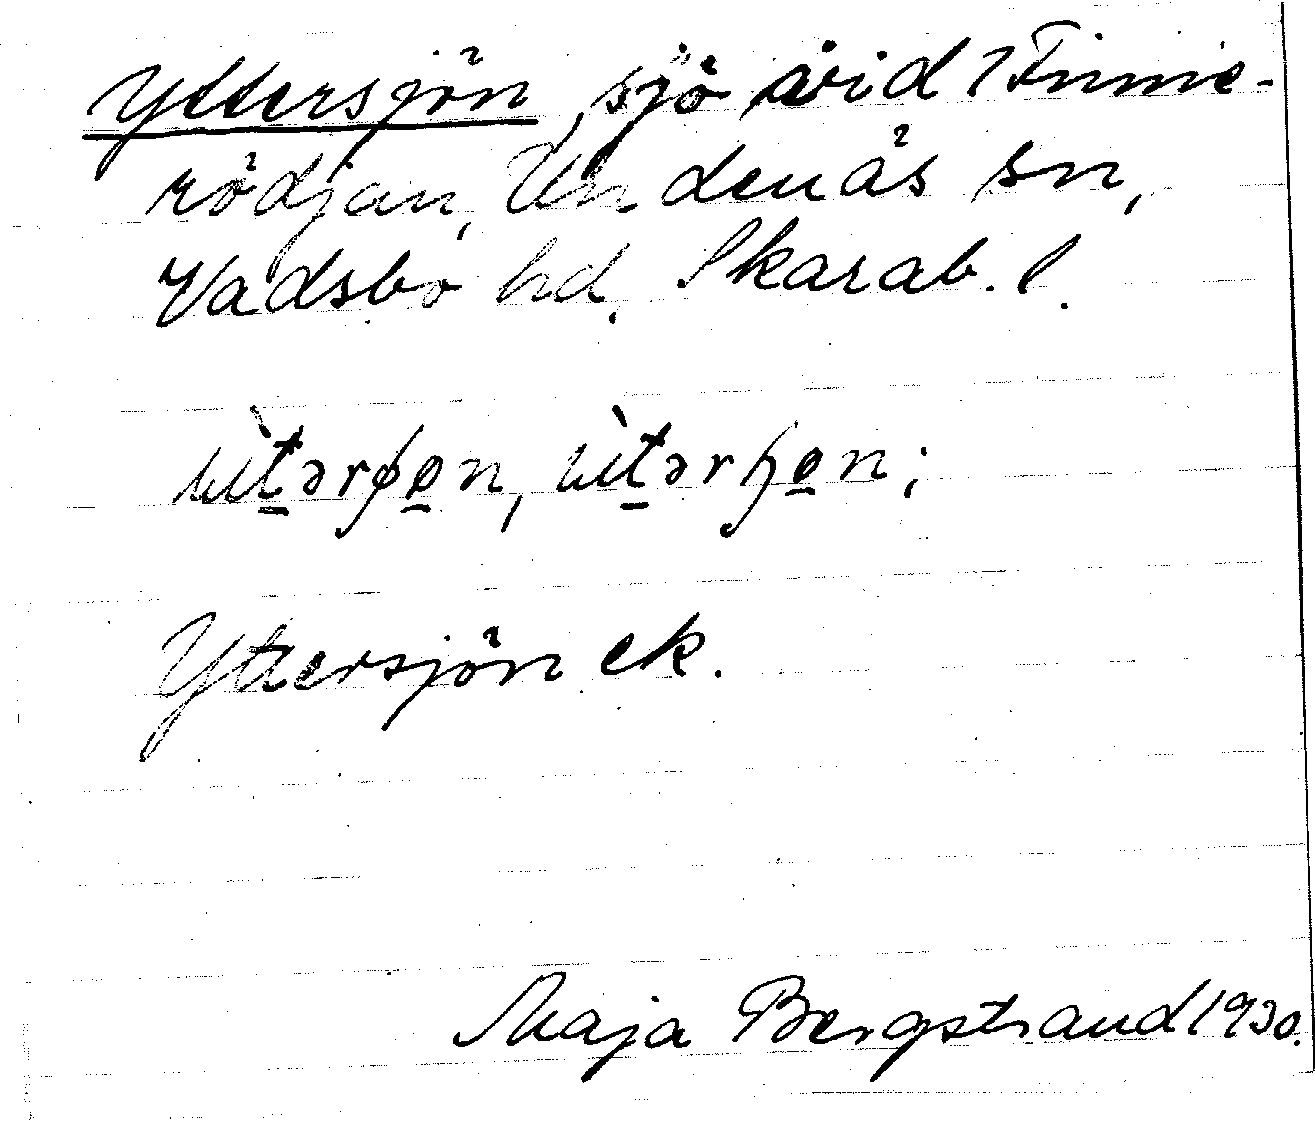 Yttersjön, sjö vid Finne-
rödjan, Undenäs sn,
Vadsbo hd, Skarab. l.
Yttersjön ek.
Maja Bergstrand 1930.